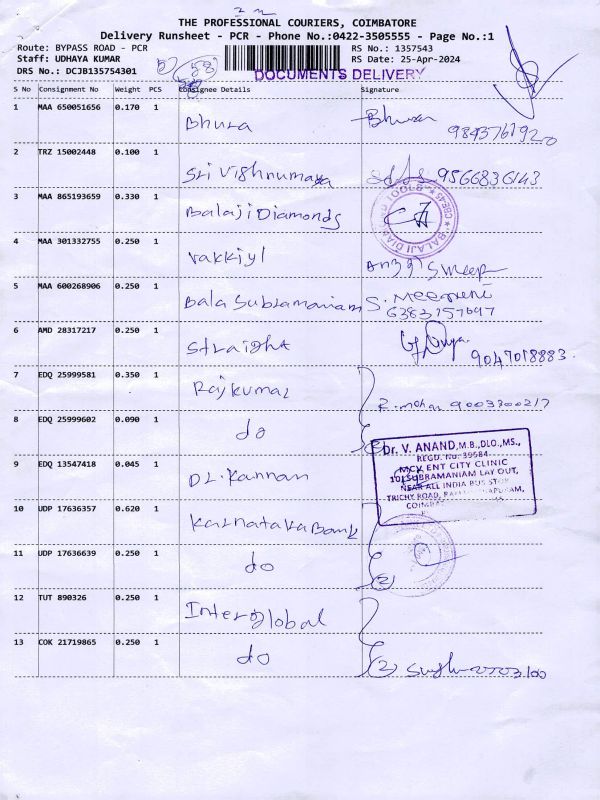 THE PROFESSIONAL COURIERS, COIMBATORE
Delivery Runsheet - PCR - Phone No.:0422-3505555 - Page No.:1
Route: BYPASS ROAD - PCR RS No.: 1357543
Staff: UDHAYA KUMAR RS Date: 25-Apr-2024
DRS No.: DCJB135754301 DOCUMENTS DELIVERY
S No Consignment No Weight PCS Consignee Details Signature
1 MAA 650051656 0.170 1 Bhuza
2 TRZ 15002448 0.100 1 Sri Vishnumaya 9566836143
3 MAA 865193659 0.330 1 Balaji Diamonds
4 MAA 301332755 0.250 1 Vakkiyl
5 MAA 600268906 0.250 1 Bala Subramaniam S. Meegneni
6383157697
6 AMD 28317217 0.250 1 Straight
9047018883.
7 EDQ 25999581 0.350 1 Rajkumar
R. mohan 9003300217
8 EDQ 25999602 0.090 1 do
Dr. V. ANAND, M.B.,DLO.,MS.,
REGD. No. 39584
MCV ENT CITY CLINIC
101, SUBRAMANIAM LAY OUT,
NEAR ALL INDIA BUS STOP
TRICHY ROAD,
9 EDQ 13547418 0.045 1 Dr. Kannan
10 UDP 17636357 0.620 1 Karnataka Bank
11 UDP 17636639 0.250 1 do (2)
12 TUT 890326 0.250 1 Interglobal
13 COK 21719865 0.250 1 do (2)